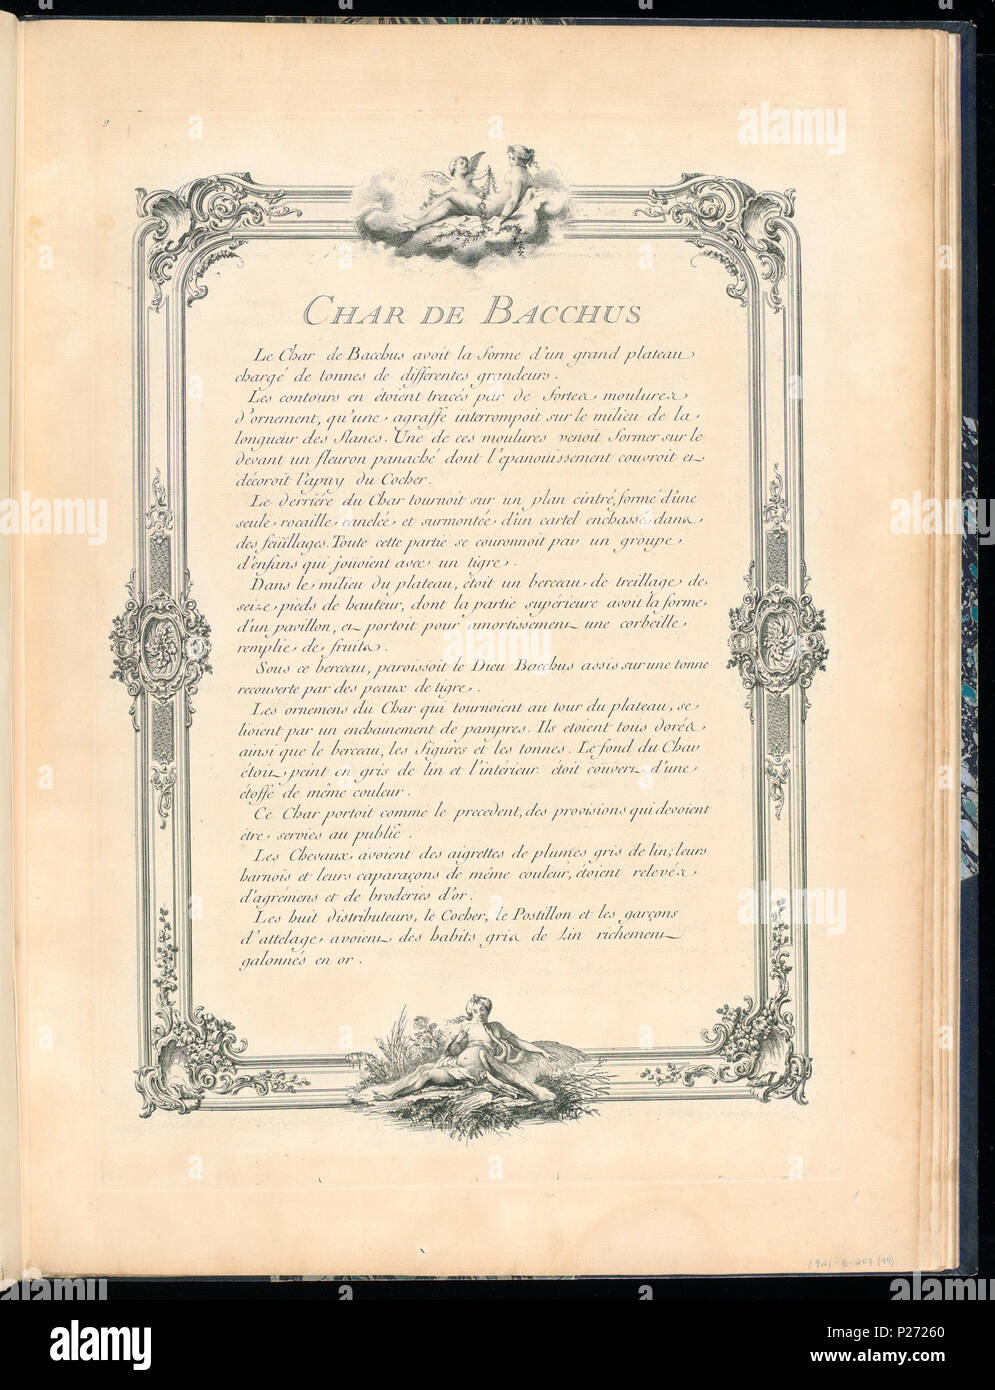 9
CHAR DE BACCHUS
Le Char de Bacchus avoit la forme d'un grand plateau
chargé de tonnes de différentes grandeurs.
Les contours en étoient tracés par de fortes moulures
d'ornement, qu'une agraffe interrompoit sur le milieu de la
longueur des flancs. Une de ces moulures venoit former sur le
devant un fleuron panaché dont l'epanouissement couvroit et
décoroit l'apuy du Cocher.
Le derriére du Char tournoit sur un plan cintré, formé d'une
seule rocaille canelée et surmontée d'un cartel enchassé dans
des feüillages. Toute cette partie se couronnoit par un groupe
d'enfans qui jouoient avec un tigre.
Dans le milieu du plateau, étoit un berceau de treillage de
seize pieds de hauteur, dont la partie supérieure avoit la forme
d'un pavillon, et portoit pour amortissement une corbeille
remplie de fruits.
Sous ce berceau, paroissoit le Dieu Bacchus assis sur une tonne
recouverte par des peaux de tigre.
Les ornemens du Char qui tournoient au tour du plateau, se
lioient par un enchainement de pampres. Ils etoient tous dorés
ainsi que le berceau, les figures et les tonnes. Le fond du Char
étoit peint en gris de lin et l'intérieur étoit couvert d'une
étoffe de même couleur.
Ce Char portoit comme le precedent, des provisions qui devoient
être servies au public.
Les Chevaux avoient des aigrettes de plumes gris de lin; leurs
harnois et leurs caparaçons de même couleur, étoient relevés
d'agrémens et de broderies d'or.
Les huit distributeurs, le Cocher, le Postillon et les garçons
d'attelage avoient des habits gris de lin richement
galonnés en or.
1921-6-203 (44)
alamy
Image ID: P27260
www.alamy.com